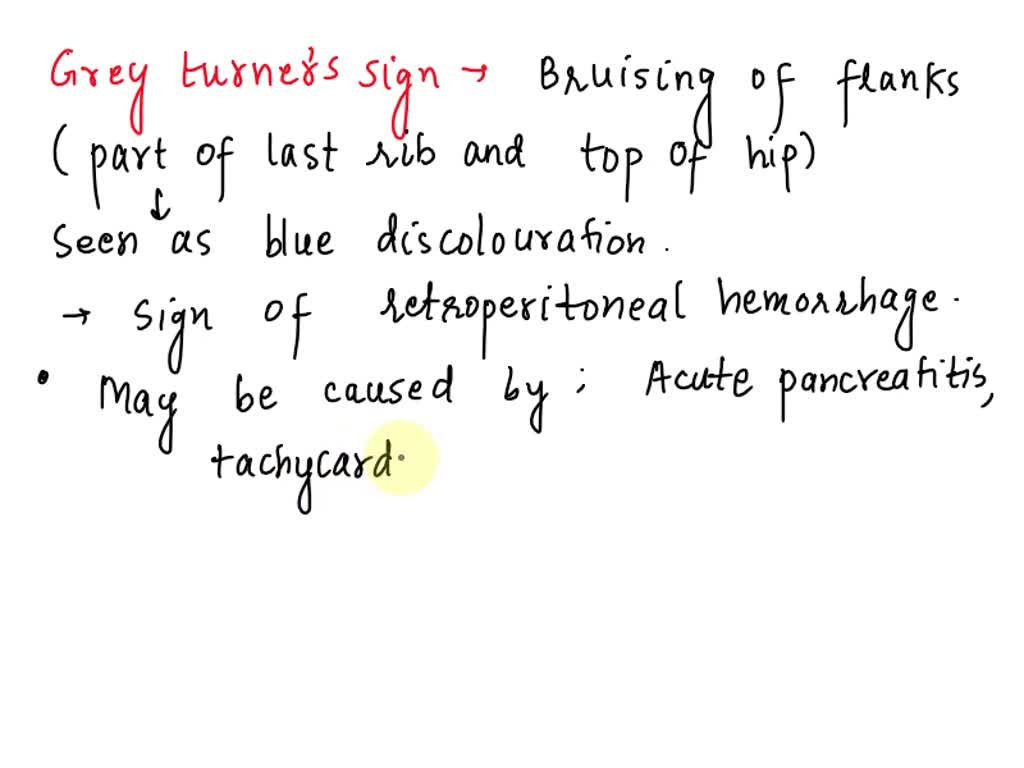 Grey turner's sign → Bruising of flanks
( part of last rib and top of hip)
↓
seen as blue discolouration.
→ sign of retroperitoneal hemorrhage.
• May be caused by ; Acute pancreatitis,
tachycard